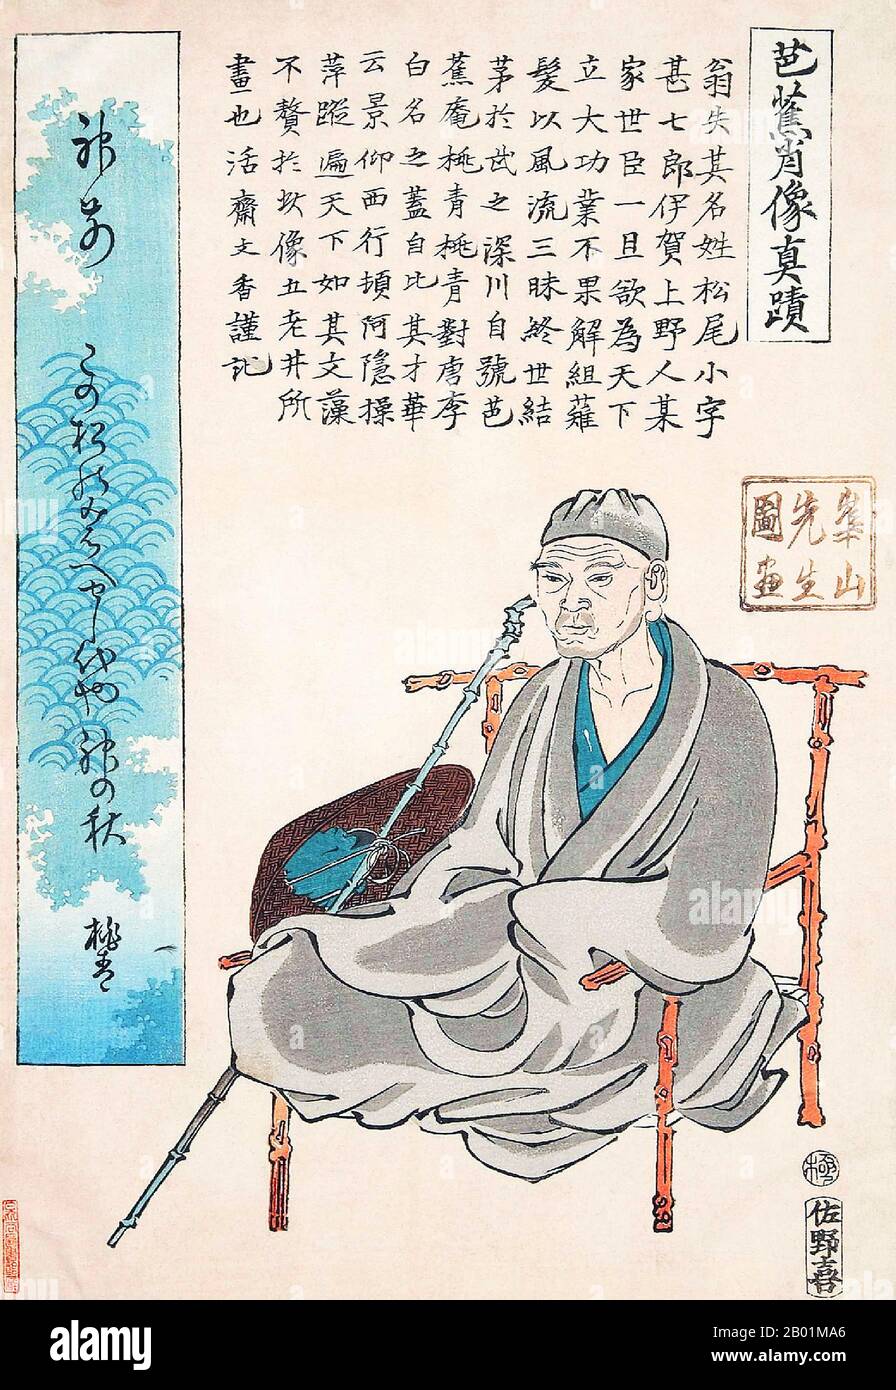 芭蕉肖像真蹟
翁失其名姓松尾小字
甚七郎伊賀上野人某
家世臣一旦欲為天下
立大功業不果解組薙
髮以風流三昧終世結
茅於武之深川自號芭
蕉庵桃青桃青對唐李
白名之蓋自比其才華
云景仰西行頓阿隱操
萍蹤遍天下如其文藻
不贅於玆像五老井所
畫也活齋文香謹識
華山
先生
圖画
神前
この松のみはえせし代や神の秋
桃青
極
佐野喜
alamy
Image ID: 2B01MA6
www.alamy.com